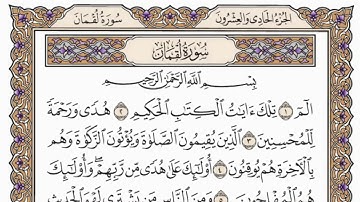 الجزء الحادي والعشرون
سورة لقمان
سُورَةُ لُقْمَانَ
بِسْمِ اللَّهِ الرَّحْمَٰنِ الرَّحِيمِ
الٓمٓ ١ تِلْكَ ءَايَٰتُ ٱلْكِتَٰبِ ٱلْحَكِيمِ ٢ هُدًى وَرَحْمَةً
لِّلْمُحْسِنِينَ ٣ ٱلَّذِينَ يُقِيمُونَ ٱلصَّلَوٰةَ وَيُؤْتُونَ ٱلزَّكَوٰةَ وَهُم
بِٱلْءَاخِرَةِ هُمْ يُوقِنُونَ ٤ أُو۟لَٰٓئِكَ عَلَىٰ هُدًى مِّن رَّبِّهِمْ وَأُو۟لَٰٓئِكَ
هُمُ ٱلْمُفْلِحُونَ ٥ وَمِنَ ٱلنَّاسِ مَن يَشْتَرِى لَهْوَ ٱلْحَدِيثِ